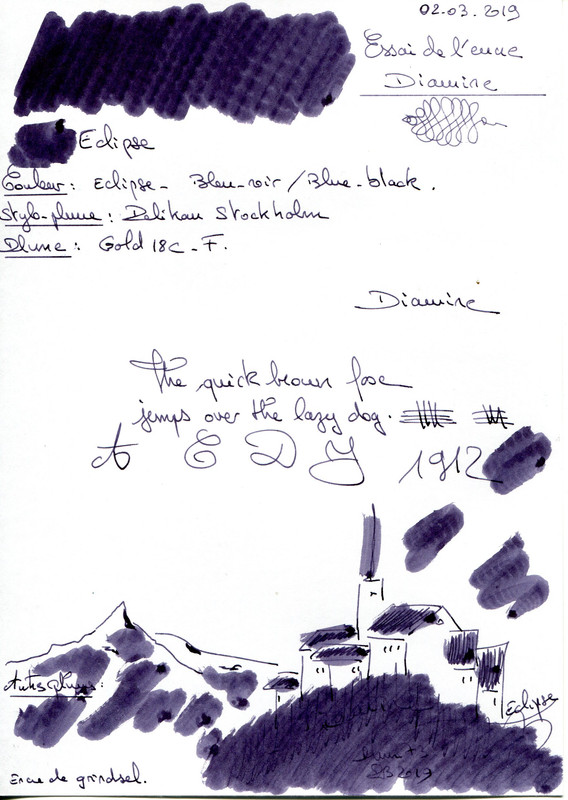 02.03.2019
Essai de l'encre
Diamine
Eclipse
Couleur: Eclipse - Bleu-noir / Blue-black.
Stylo-plume: Pelikan Stockholm
Plume: Gold 18c - F.
Diamine
The quick brown fox
jumps over the lazy dog.
A E D Y 1912
Eclipse
2019
Encre de grindsel.